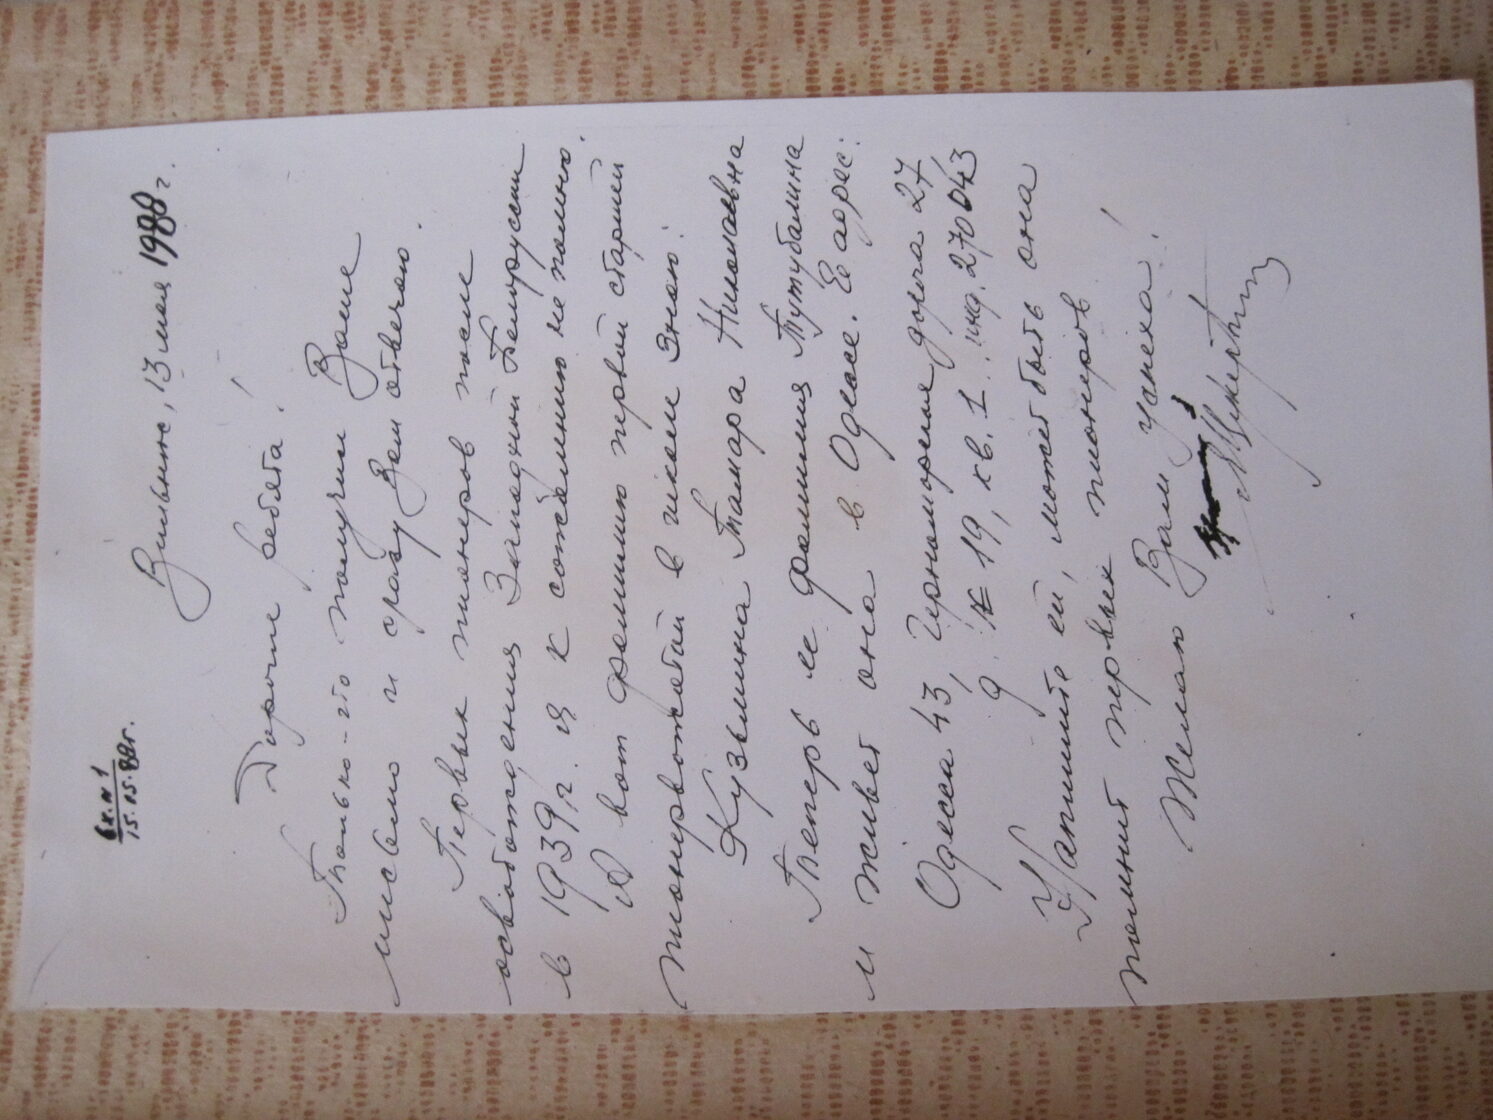 Вх. N 1
15.15.88г.
Вильнюс, 13 мая 1988 г.
Дорогие ребята!
Только-что получил Ваше
письмо и сразу Вам отвечаю.
Первых пионеров после
освобождения Западной Белоруссии
в 1939 г. я к сожалению не помню.
А вот фамилию первой старшей
пионервожатой в школе знаю:
Кузьмина Тамара Николаевна
Теперь ее фамилия Тутубалина
и живет она в Одессе. Её адрес:
Одесса 43, Черноморская дорога 27,
19, кв. 1. инд. 270043
Напишите ей, может быть она
помнит первых пионеров
Желаю Вам успеха!